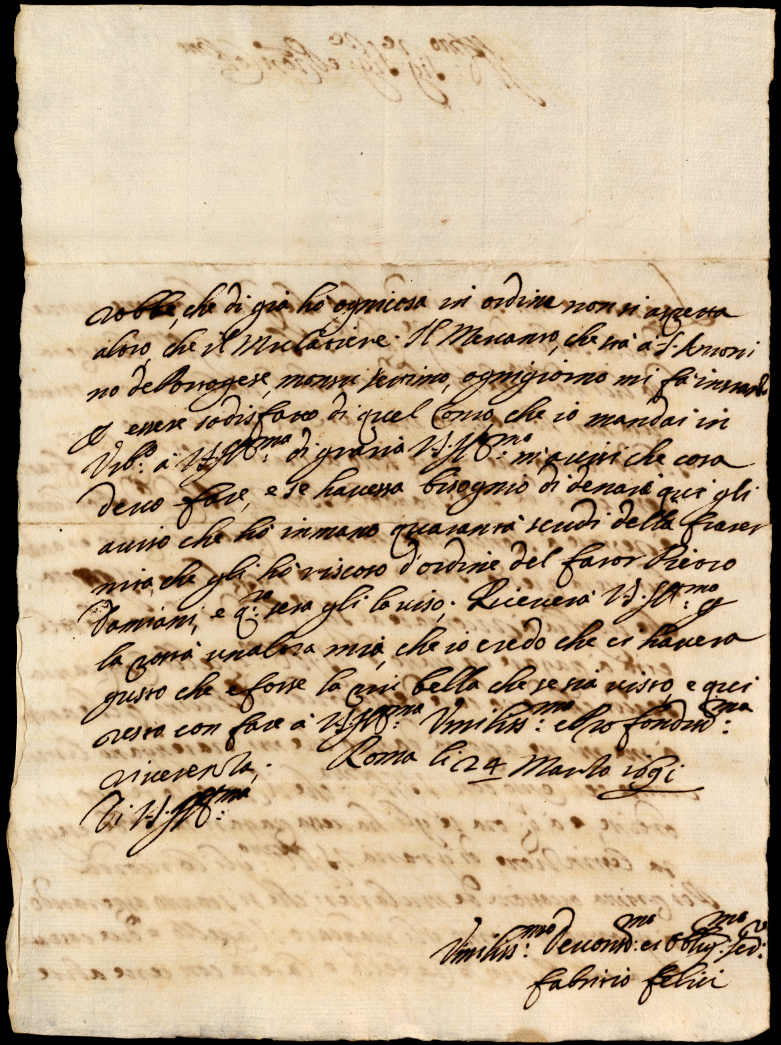 robbe, che di già hò ognicosa in ordine non si aspetta
altro, che il Mulattiere. Il Mercante, che stà a S. Antoni
no de Portogese, monsù ogni giorno mi fà instanza
essere sodisfatto di quel Conto, che io mandai in
Urb.o à V.S. Ill.ma di gratia V.S. Ill.ma mi avvisi che cosa
devo fare, e se havessa bisogno di denari qui gli
aviso che hò in mano quaranta scudi della frater
nita che gli hò riscoso d'ordine del fator Pietro
Damiani, e q.to sera gli laviso. Riceverà V.S. Ill.ma
la unaltra mia, che io credo che ci havera
gusto che e forse la più bella che se sia visto, e qui
resto con fare à V.S. Ill.ma Umiliss.ma e Profondiss.ma
riverenza. Roma li 24 Marzo 1691
Di V.S. Ill.ma
Umiliss.mo Devotiss.mo et Oblig.mo ser.re
Fabritio Felici